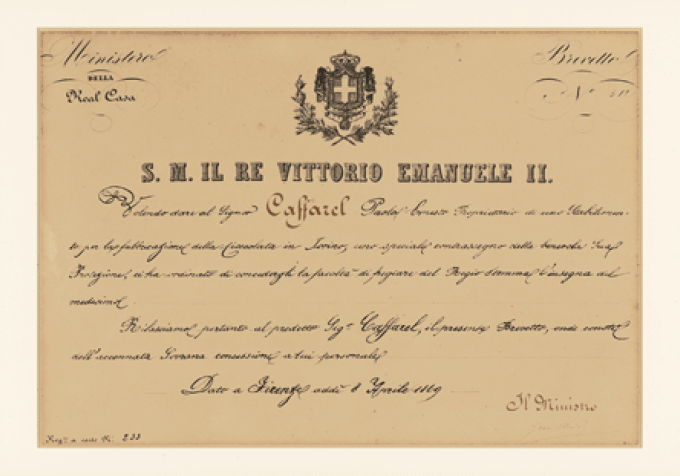 Ministero
DELLA
Real Casa
Brevetto
N°
S. M. IL RE VITTORIO EMANUELE II.
Volendo dare al Signor Caffarel Paolo Ernesto Proprietario di uno Stabilimen-
to per la fabbricazione della Cioccolata in Torino, uno speciale contrassegno della benevola Sua
Protezione, ci ha ordinato di concedergli la facoltà di fregiare del Regio Stemma l'insegna del
medesimo.
Rilasciamo pertanto al predetto Sig.r Caffarel, il presente Brevetto, onde consti
dell'accennata Sovrana concessione a lui personale
Dato a Firenze addì 8 Aprile 1869
Il Ministro
Reg.o a carte N. 233